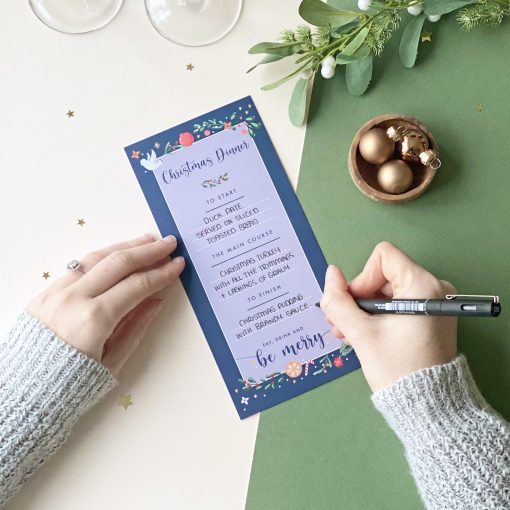 Christmas Dinner
TO START
DUCK PATE
SERVED ON SLICED
TOASTED BREAD
THE MAIN COURSE
CHRISTMAS TURKEY
WITH ALL THE TRIMMINGS
+ LASHINGS OF GRAVY
TO FINISH
CHRISTMAS PUDDING
WITH BRANDY SAUCE
EAT, DRINK AND
be merry